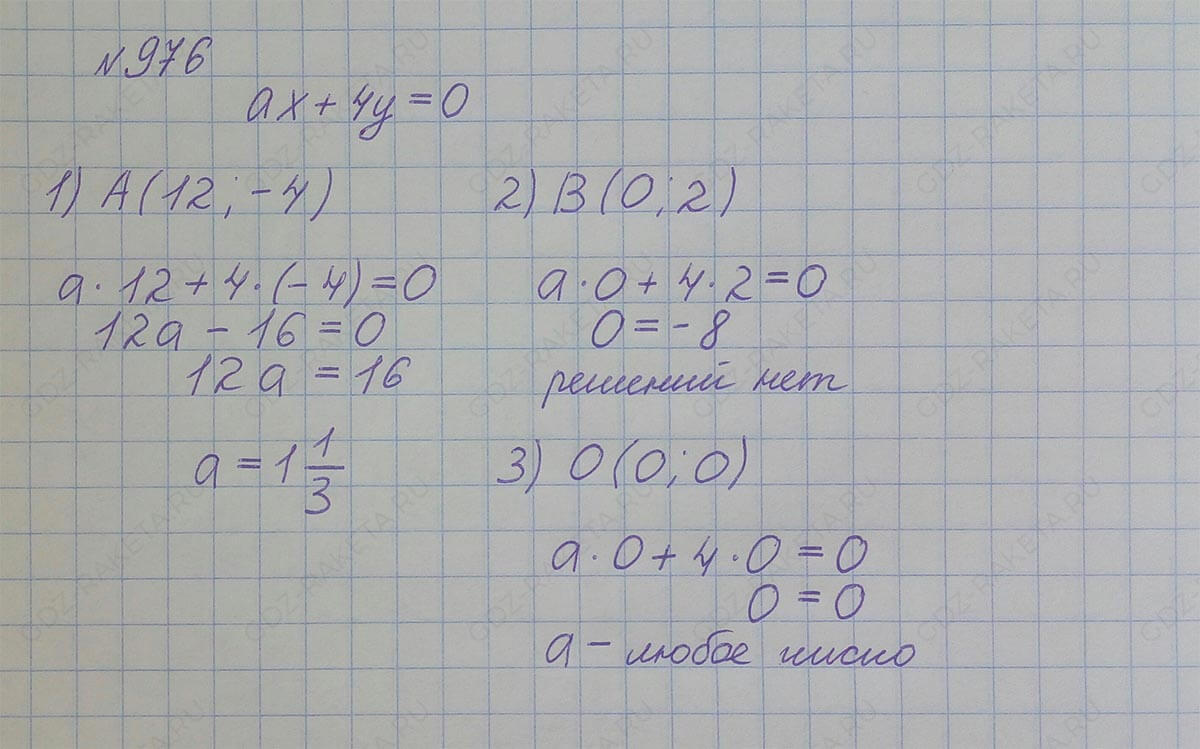 №976
ax + 4y = 0
1) A(12; -4)
a · 12 + 4 · (-4) = 0
12a - 16 = 0
12a = 16
a = 1 1/3
2) B(0; 2)
a · 0 + 4 · 2 = 0
0 = -8
решений нет
3) O(0; 0)
a · 0 + 4 · 0 = 0
0 = 0
a - любое число
GDZ-RAKETA.RU